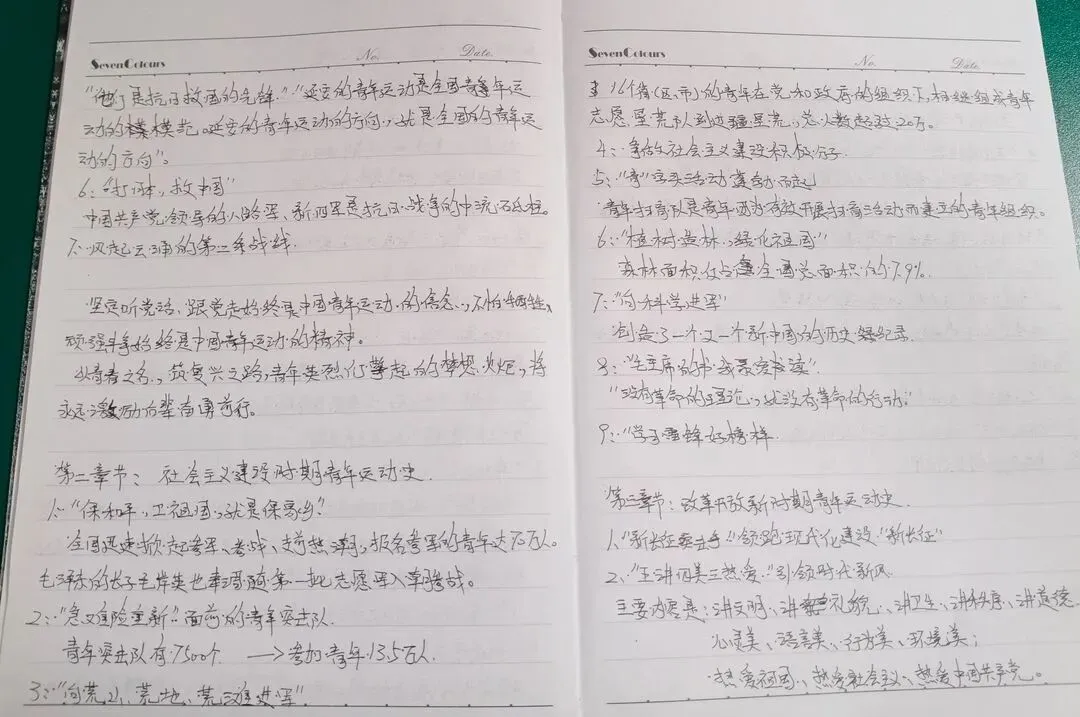 SevenColours No. Date.
"他们是抗日救国的先锋。""延安的青年运动是全国青年运
动的模范。延安的青年运动的方向,就是全国的青年运
动的方向"。
6:"打日本,救中国"
中国共产党领导的八路军、新四军是抗日战争的中流砥柱。
7:风起云涌的第二条战线.
坚定听党话、跟党走始终是中国青年运动的信念,不怕牺牲、
顽强斗争始终是中国青年运动的精神。
以青春之名,筑复兴之路,青年英烈们擎起的梦想火炬,将
永远激励后辈奋勇前行。
第二章节:社会主义建设时期青年运动史.
1:"保和平,卫祖国,就是保家乡"
全国迅速掀起参军、参战、支前热潮,报名参军的青年达 万人。
毛泽东的长子毛岸英也奉调随第一批志愿军入朝参战。
2:"急难险重新"面前的青年突击队.
青年突击队有7500个 →参加青年13.5万人.
3:"向荒山、荒地、荒滩进军"
SevenColours No. Date.
16个省(区、市)的青年在党和政府的组织下,相继组成青年
志愿垦荒队到边疆垦荒,总人数超过20万。
4:争做社会主义建设积极分子.
5:"青"字头活动蓬勃而起
青年扫盲队是青年团为有效开展扫盲活动而建立的青年组织。
6:"植树造林,绿化祖国"
森林面积仅占全国总面积的7.9%.
7:"向科学进军"
创造了一个又一个新中国的历史纪录.
8:"毛主席的书我最爱读".
"没有革命的理论,就没有革命的行动."
9:"学习雷锋好榜样.
第三章节:改革开放新时期青年运动史.
1."新长征突击手"领跑现代化建设"新长征"
2、"五讲四美三热爱"引领时代新风
主要内容是:讲文明、讲礼貌、讲卫生、讲秩序、讲道德
心灵美、语言美、行为美、环境美;
热爱祖国、热爱社会主义、热爱中国共产党。